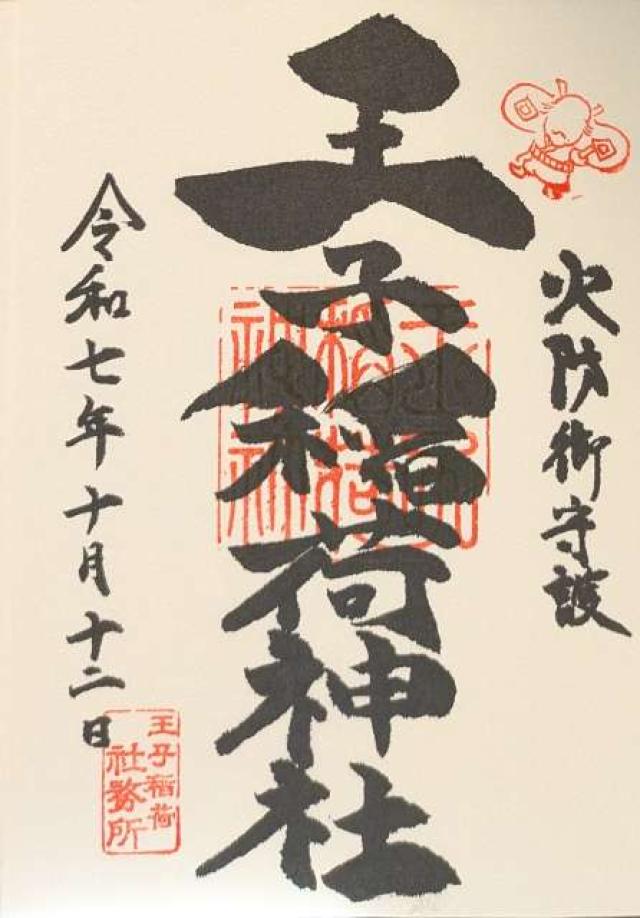 火防御守護
王子稲荷神社
王子稲荷神社
令和七年十月十二日
王子稲荷
社務所